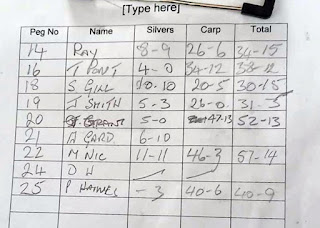 [Type here]
Peg No Name Silvers Carp Total
14 Ray 8-9 26-6 34-15
16 T PONT 4-0 34-12 38-12
18 S GILL 10-10 20-5 30-15
19 J SMITH 5-3 26-0 31-3
20 5-0 47-13 52-13
21 A CARD 6-10
22 M NIC 11-11 46-3 57-14
24 D H
25 P HAYNES -3 40-6 40-9